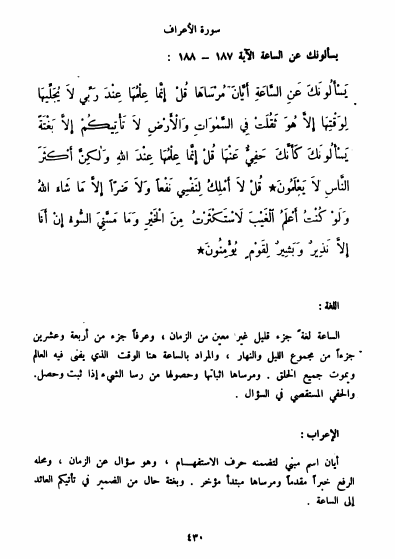 سورة الأعراف
يسألونك عن الساعة الآية ١٨٧ – ١٨٨ :
يَسْأَلُونَكَ عَنِ السَّاعَةِ أَيَّانَ مُرْسَاهَا قُلْ إِنَّمَا عِلْمُهَا عِنْدَ رَبِّي لَا يُجَلِّيهَا
لِوَقْتِهَا إِلَّا هُوَ ثَقُلَتْ فِي السَّمٰوَاتِ وَالْأَرْضِ لَا تَأْتِيكُمْ إِلَّا بَغْتَةً
يَسْأَلُونَكَ كَأَنَّكَ حَفِيٌّ عَنْهَا قُلْ إِنَّمَا عِلْمُهَا عِنْدَ اللهِ وَلٰكِنَّ أَكْثَرَ
النَّاسِ لَا يَعْلَمُونَ★ قُلْ لَا أَمْلِكُ لِنَفْسِي نَفْعاً وَلَا ضَرّاً إِلَّا مَا شَاءَ اللهُ
وَلَوْ كُنْتُ أَعْلَمُ الْغَيْبَ لَاسْتَكْثَرْتُ مِنَ الْخَيْرِ وَمَا مَسَّنِيَ السُّوءُ إِنْ أَنَا
إِلَّا نَذِيرٌ وَبَشِيرٌ لِقَوْمٍ يُؤْمِنُونَ★
اللغة :
الساعة لغة جزء قليل غير معين من الزمان ، وعرفاً جزء من أربعة وعشرين
جزءاً من مجموع الليل والنهار ، والمراد بالساعة هنا الوقت الذي يفنى فيه العالم
ويموت جميع الخلق . ومرساها اثباتها وحصولها من رسا الشيء إذا ثبت وحصل.
والحفي المستقصي في السؤال .
الإعراب :
أيان اسم مبني لتضمنه حرف الاستفهام ، وهو سؤال عن الزمان ، ومحله
الرفع خبراً مقدماً ومرساها مبتدأ مؤخر . وبغتة حال من الضمير في تأتيكم العائد
إلى الساعة .
٤٣٠